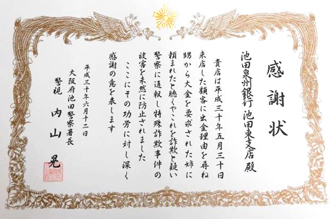 感謝状
池田泉州銀行 池田東支店 殿
貴店は平成三十年五月三十日
来店した顧客に出金理由を尋ね
甥から大金を要求された姉に
頼まれたと聴くやこれを詐欺と疑い
警察に通報し特殊詐欺事件の
被害を未然に防止されました
ここにその功労に対し深く
感謝の意を表します
平成三十年六月十二日
大阪府池田警察署長
警視 内山 晃